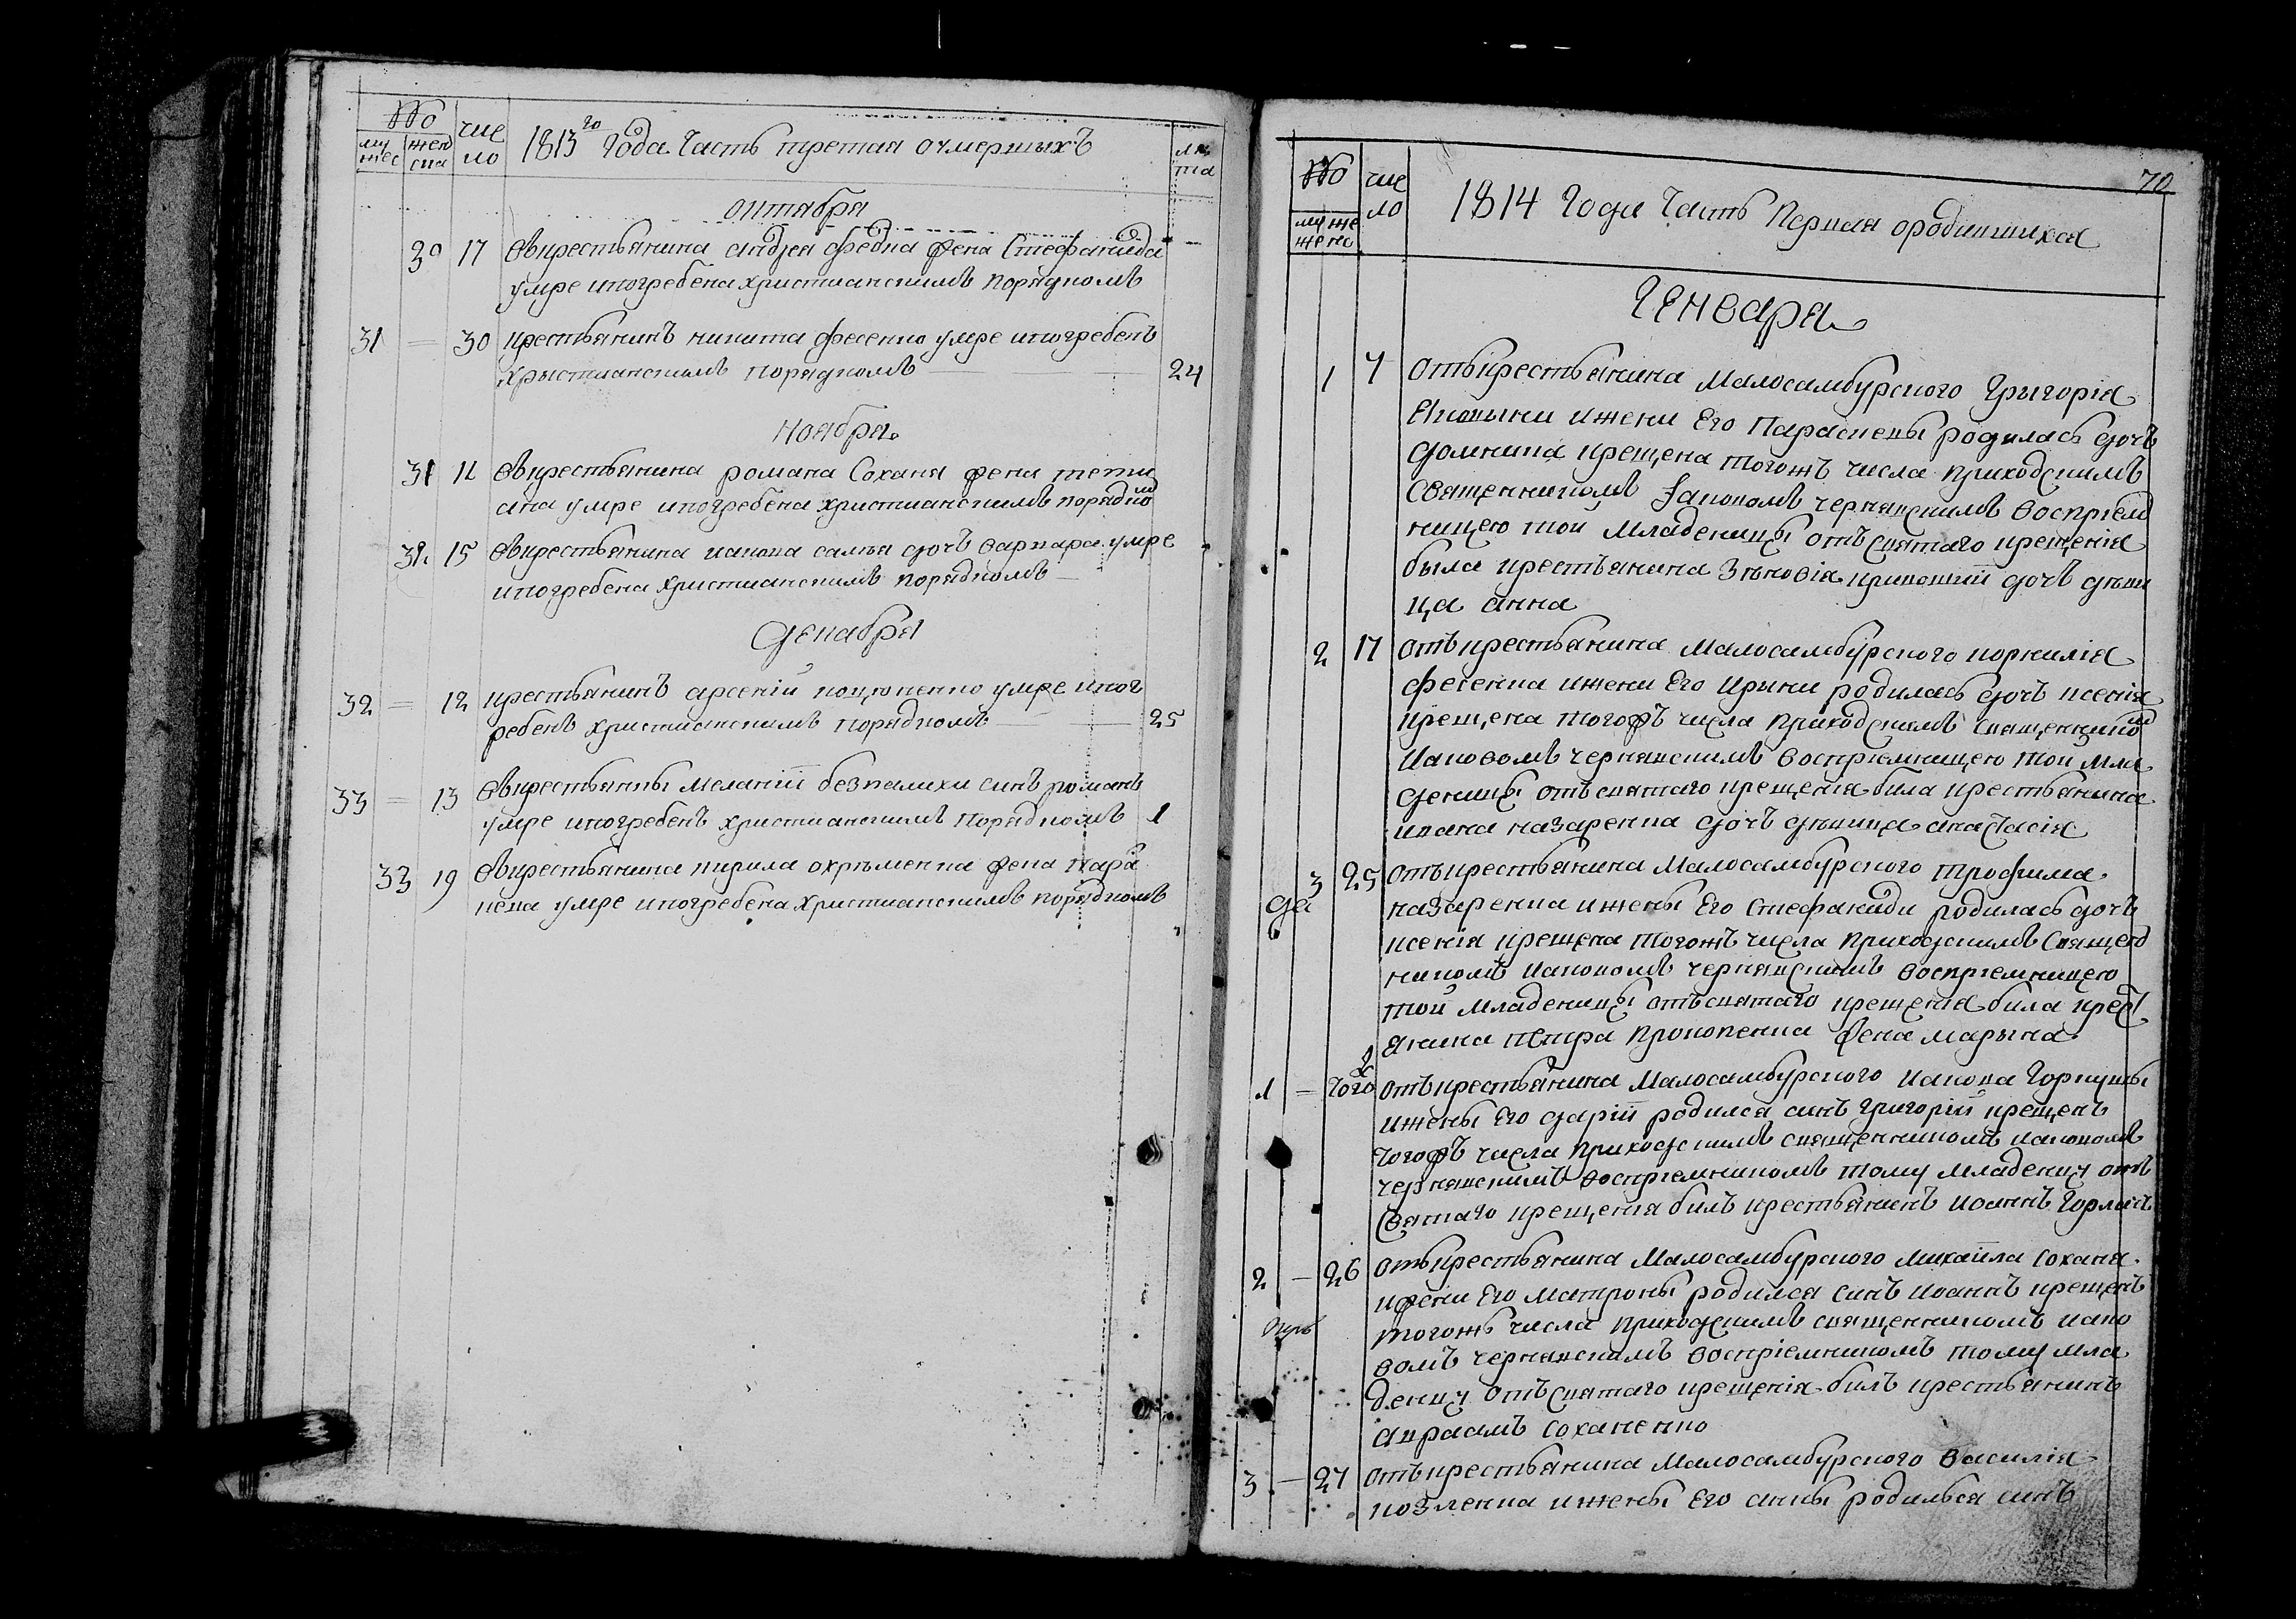 №
чис
ло
му
жес
жен
ска
1813го Года Часть третая оумершихъ
ле
та
октября
30 17 Вкрестьянина андрея федка жена Стефанида
умре ипогребена христианскимъ порядкомъ
31 = 30 крестьянинъ никита фесенко умре ипогребенъ
христианскимъ порядкомъ 24
ноября
31 12 Вкрестьянина романа Соханя жена тети
ана умре ипогребена христианскимъ порядко
м
32 15 Вкрестьянина иакова дочъ варвара умре
ипогребена христианскимъ порядкомъ
Декабря
32 = 12 крестьянинъ арсений коцюпенко умре ипог
ребенъ христианскимъ порядкомъ 25
33 = 13 Вкрестьянки Меланіи безпалихи синъ романъ
умре ипогребенъ христианскимъ порядкомъ 1
33 19 Вкрестьянина кирила охрѣменка жена пара
скева умре ипогребена христианскимъ порядкомъ
70
№
чис
ло
му
же
же
нс
1814 Года Часть Первая ородившихся
Генваря
1 4 отъкрестьянина Малосамбурского Григорія
ижени Его Параскевы родилась дочъ
домникиа крещена тогожъ числа приходскимъ
Священникомъ Іаковомъ чернявскимъ воспріем
ницею той Младеници отъ святаго крещенія
была крестьянина Зѣновія дочъ дѣви
ца анна
2 17 отъкрестьянина Малосамбурского корнилія
фесенка ижени Его Ирини родилась дочъ ксенія
крещена тогожъ числа приходскимъ священнико
м
Иаковомъ чернявскимъ воспріемницею той мла
деници отъ святаго крещенія била крестьянина
ивана назаренка дочъ дѣвица анастасія
3 25 отъкрестьянина Малосамбурского трофима
назаренка ижены Его Стефаниди родилась дочъ
ксенія крещена тогожъ числа приходскимъ Священ
никомъ иаковомъ чернявскимъ воспріемницею
той младеници отъ святаго крещенія била крест
янина петра прокопенка жена марына
1 = того отъкрестьянина Малосамбурского иакова
ижены Его дарій родился синъ григорій крещенъ
тогожъ числа приходскимъ священникомъ иаковомъ
чернявскимъ воспріемникомъ тому младенцу отъ
Святаго крещенія билъ крестьянинъ иоаннъ Горлачъ
2 – 26 отъкрестьянина Малосамбурского михаила соханя
ижени Его матроны родился синъ иоаннъ крещенъ
тогожъ числа приходскимъ священникомъ иако
вомъ чернявскимъ воспріемникомъ тому мла
денцу отъ святаго крещенія билъ крестьянинъ
авраамъ соханенко
3 – 27 отъкрестьянина Малосамбурского василія
козленка ижены Его анны родилься синъ